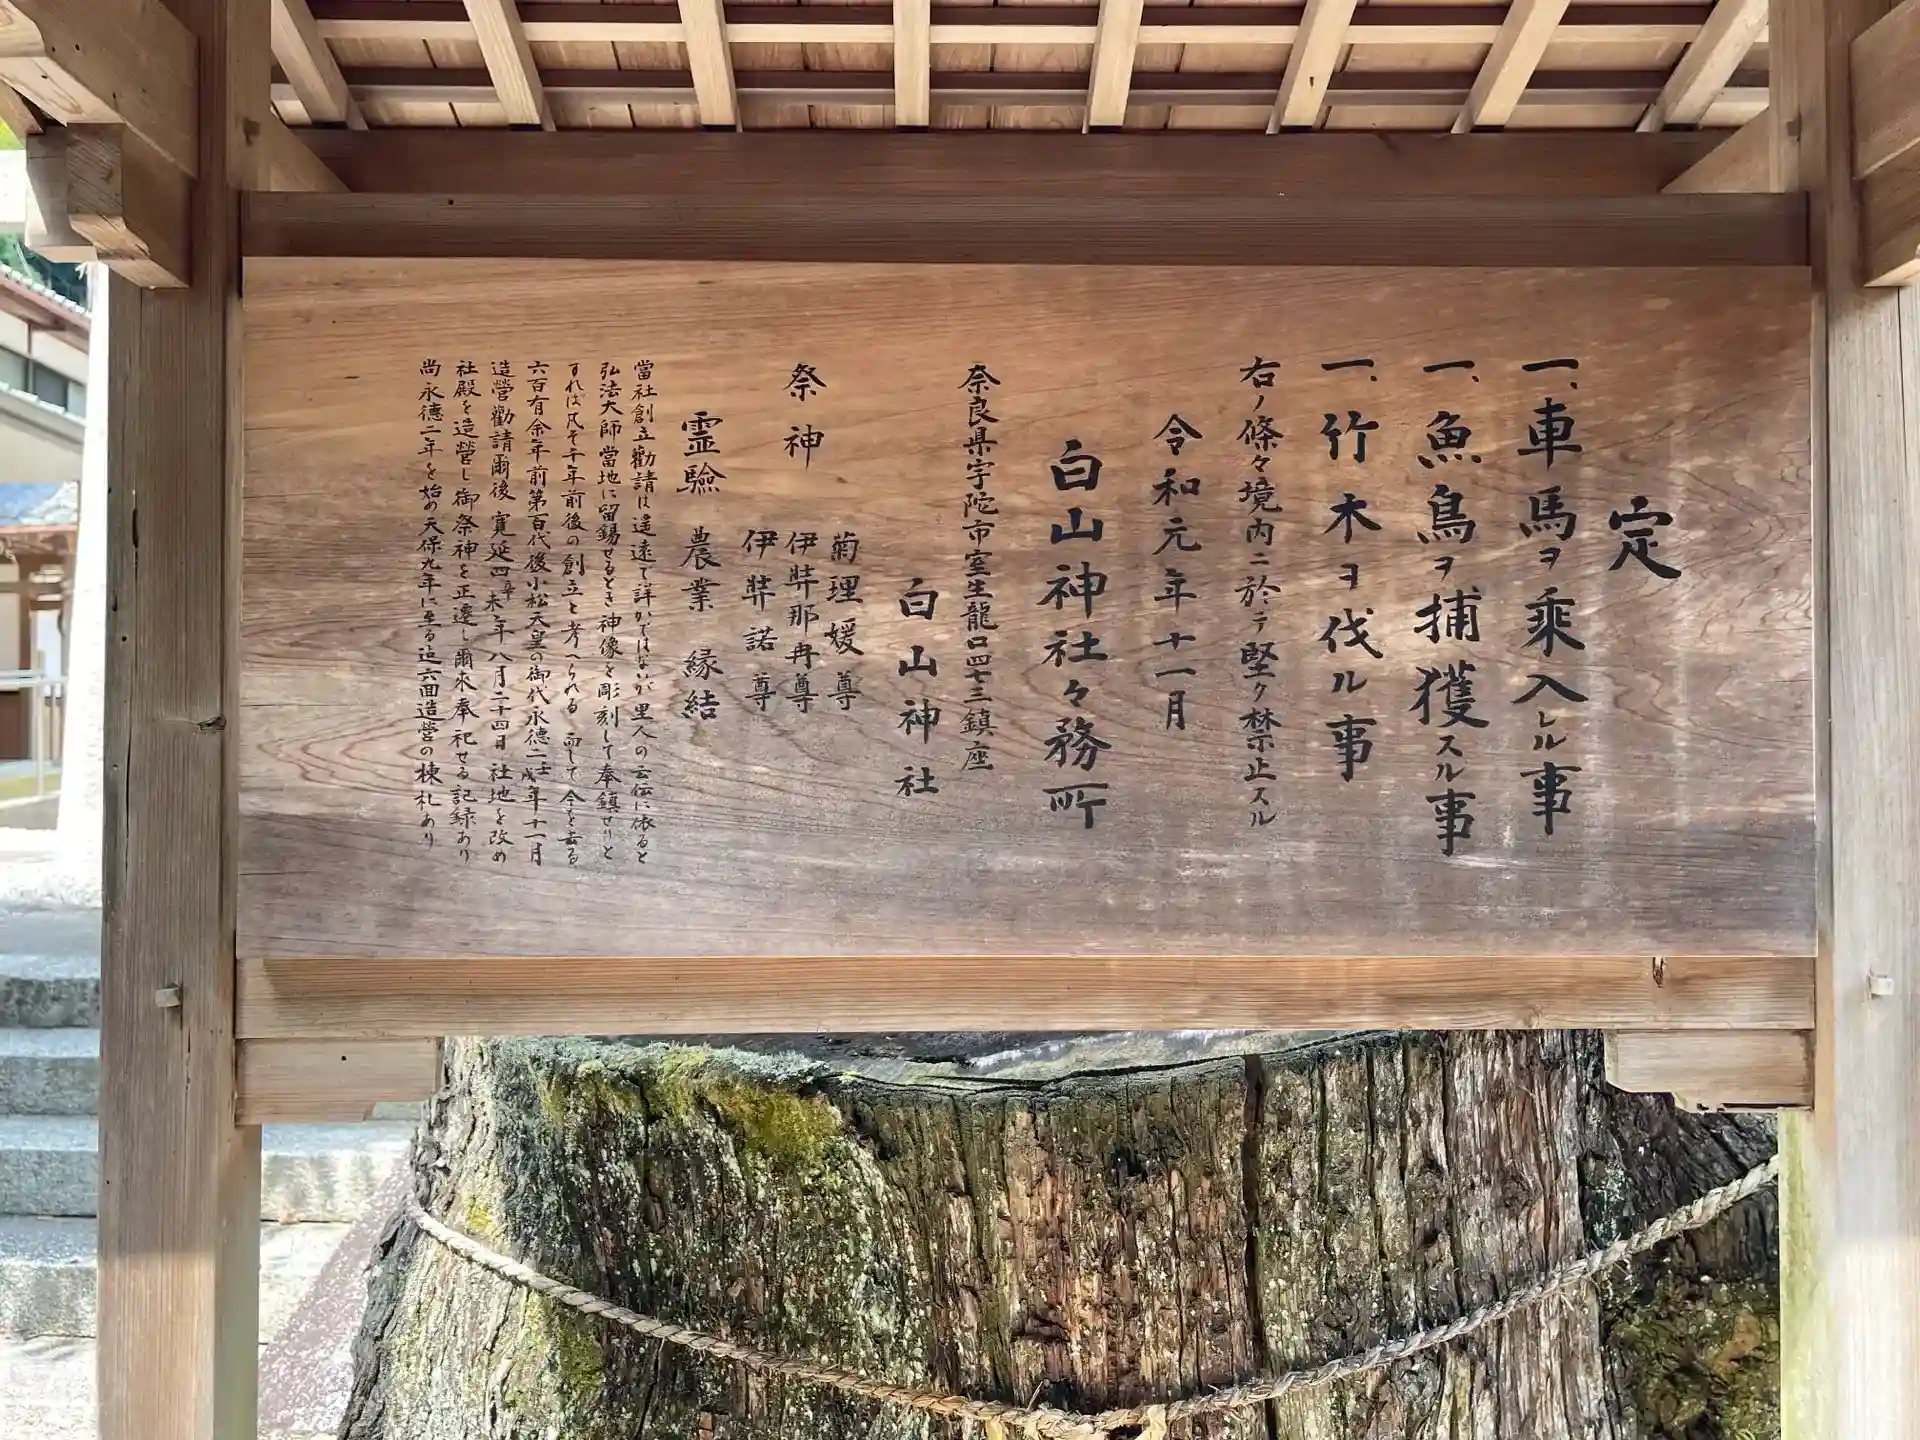 定
一、車馬ヲ乘入レル事
一、魚鳥ヲ捕獲スル事
一、竹木ヲ伐ル事
右ノ條々境内ニ於テ堅ク禁止スル
令和元年十一月
白山神社々務所
奈良県宇陀市室生龍口四七三鎮座
白山神社
祭神
菊理媛尊
伊弉那冉尊
伊弉諾尊
霊驗 農業 縁結
當社創立勸請は遥遠て詳かではないが里人の云伝に依ると
弘法大師當地に留錫せるとき神像を彫刻して奉鎮せりと
すれば凡そ千年前後の創立と考へられる而して今を去る
六百有余年前第百代後小松天皇の御代永德二壬戌年十一月
造營勸請爾後寛延四辛未年八月二十四日社地を改め
社殿を造營し御祭神を正遷し爾來奉祀せる記録あり
尚永德二年を始め天保九年に至る迠六面造営の棟札あり